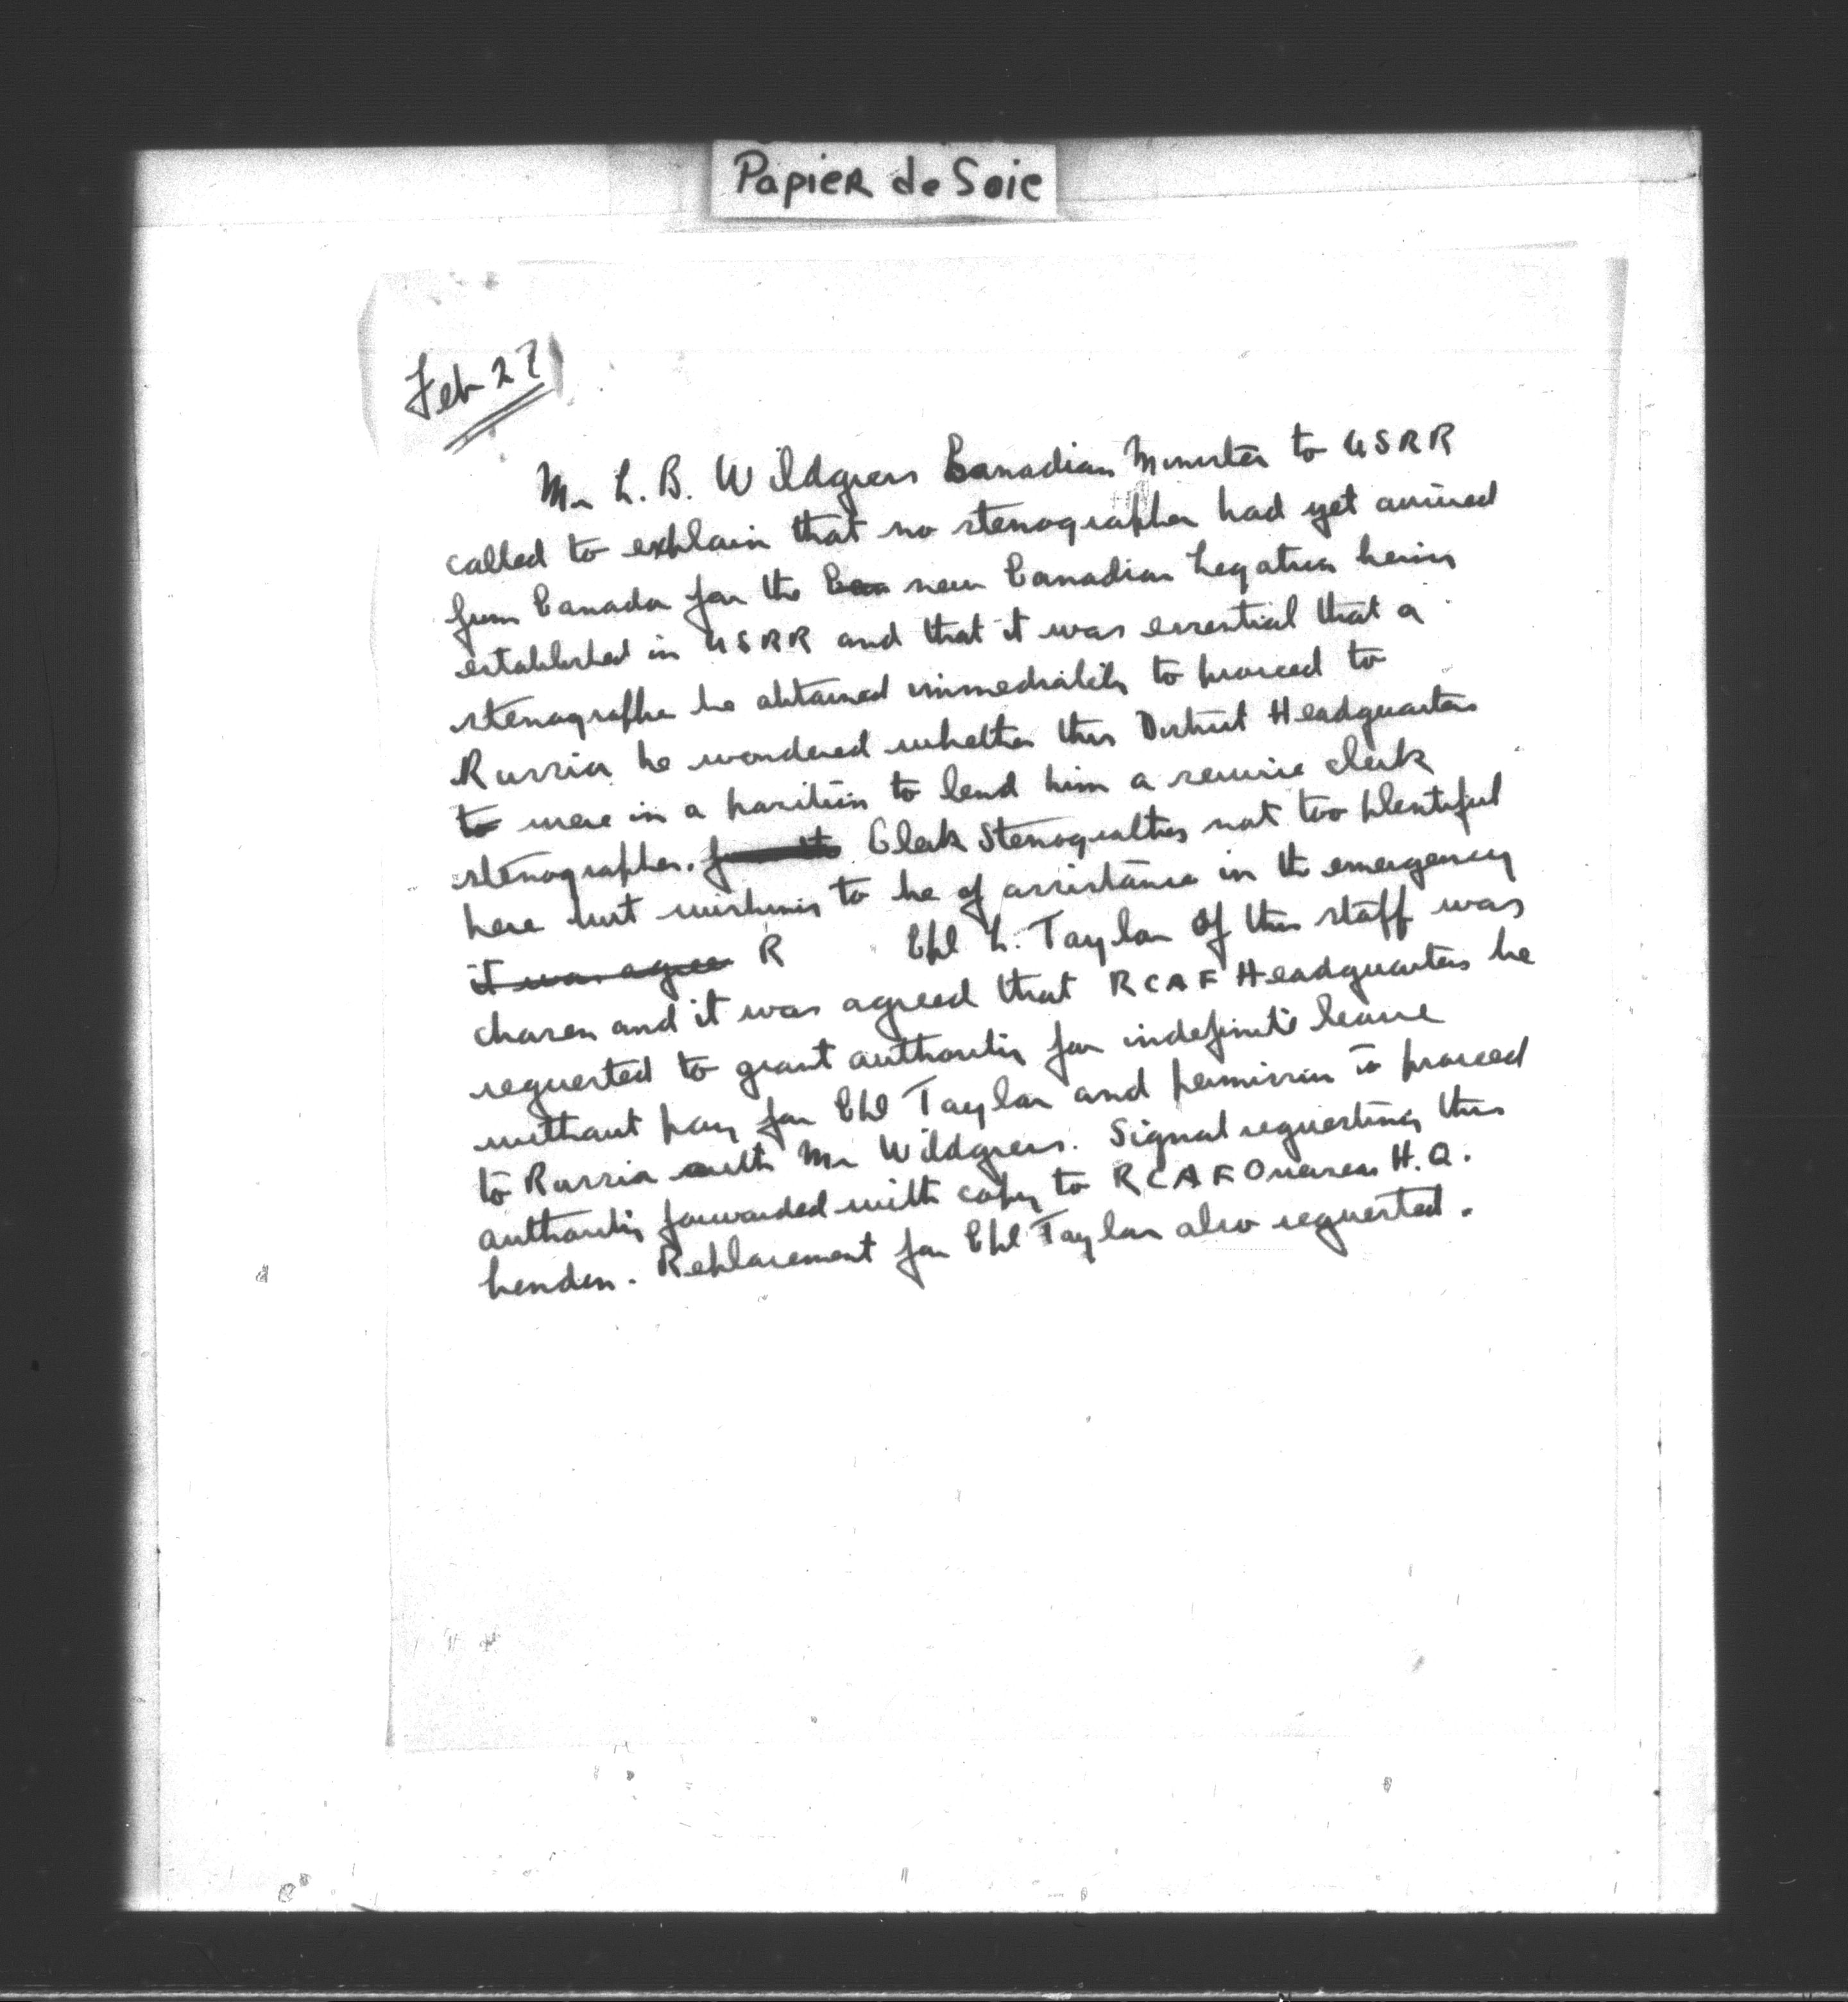 Papier de Soie
Feb 27
Mr L. B. Wildgress Canadian Minister to USRR
called to explain that no stenographer had yet arrived
from Canada for the Can new Canadian Legation being
established in USRR and that it was essential that a
stenographer be obtained immediately to proceed to
Russia he wondered whether this District Headquarters
to were in a position to lend him a service clerk
stenographer. Clerk Stenographers not too plentiful
here but wishing to be of assistance in the emergency
it was agree R Cpl L. Taylor of this staff was
chosen and it was agreed that RCAF Headquarters be
requested to grant authority for indefinite leave
without pay for Cpl Taylor and permission to proceed
to Russia with Mr Wildgress. Signal requesting this
authority forwarded with copy to RCAF Overseas H.Q.
London. Replacement for Cpl Taylor also requested.